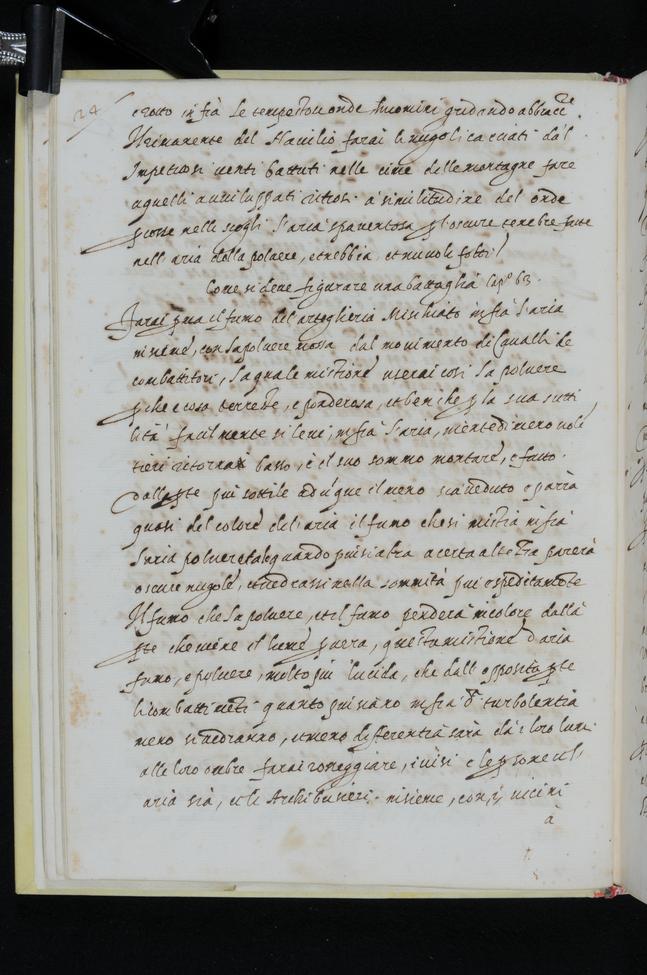 24
e rotto infrà le tempestose onde huomini gridando abbracc.^re
Il rimanente del Navilio farai li nugoli cacciati dal
Impetuosi venti battuti nelle cime delle montagne fare
a quelli avviluppati ritrosi a similitudine del onde
percosse nelli scogli l'aria spaventosa per l'oscure tenebre fatte
nell'aria dalla polvere, et nebbia, et nuvoli folti
Come si deve figurare una battaglia Cap.º 63.
Farai prima il fumo del artegheria Mischiato infrà l'aria
insieme, con la polvere mossa dal movimento di Cavalli de
combattitori, la quale mistione userai così la polvere
perche e cosa terrestre, e ponderosa, et benche per la sua sutti
lità facilmente si levi, infrà l'aria, niente di meno vole
tieri ritorna a basso, e il suo sommo montare, e fatto
dalla parte più sottile adunque il meno sia veduto e parrà
quasi del colore del aria il fumo che si mistia infrà
l'aria polverata quando più s'alza a certa altezza parerà
oscure nugole, et vedrassi nella sommità più espeditamente
Il fumo che la polvere, et il fumo penderà in colore dalla
parte che viene il lume parera, questa mistione d'aria
fumo, e polvere, molto più lucida, che dall opposita parte
li combattenti quanto più sarano infrà detta turbolentia
meno si vedranno, et meno differentia sarà da i loro lumi
alle loro ombre farai rosseggiare, i visi e le persone et l'
aria et li Archibusieri insieme, con i vicini
à